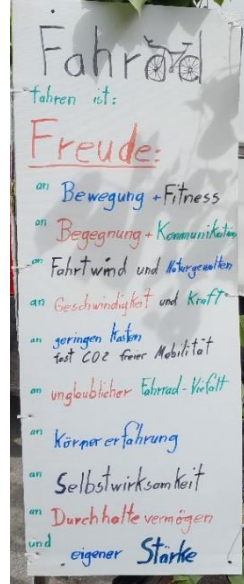 Fahrrad
fahren ist:
Freude:
an Bewegung + Fitness
an Begegnung + Kommunikation
an Fahrtwind und Naturgewalten
an Geschwindigkeit und Kraft
an geringen Kosten
fast CO2 freier Mobilität
an unglaublicher Fahrrad-Vielfalt
an Körpererfahrung
an Selbstwirksamkeit
an Durchhaltevermögen
und eigener Stärke